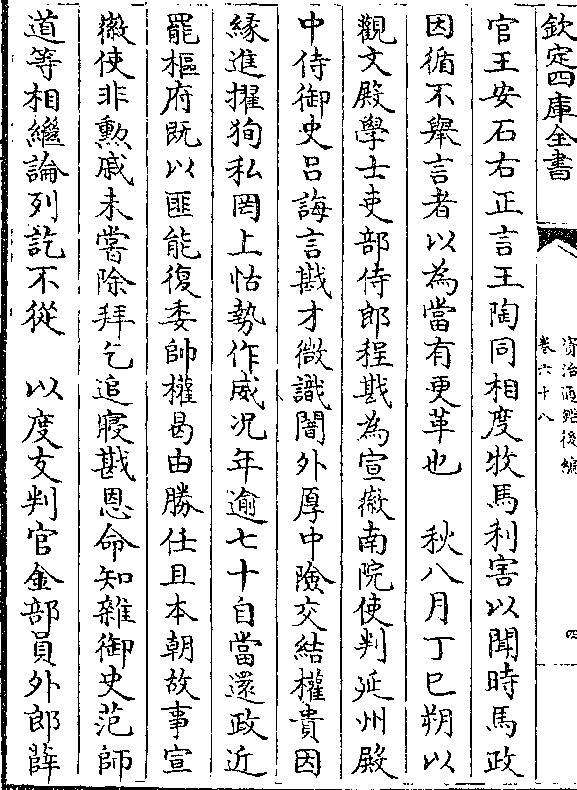 欽定四庫全書
資治通鑑後編
卷六十八
四
官王安石右正言王陶同相度牧馬利害以聞時馬政
因循不舉言者以為當有更革也　秋八月丁巳朔以
觀文殿學士吏部侍郎程戡為宣徽南院使判延州殿
中侍御史呂誨言戡才微識闇外厚中險交結權貴因
緣進擢狥私罔上怙勢作威况年逾七十自當還政近
罷樞府既以匪能復委帥權曷由勝任且本朝故事宣
徽使非勲戚未嘗除拜乞追寢戡恩命知雜御史范師
道等相繼論列訖不從　以度支判官金部員外郎薛